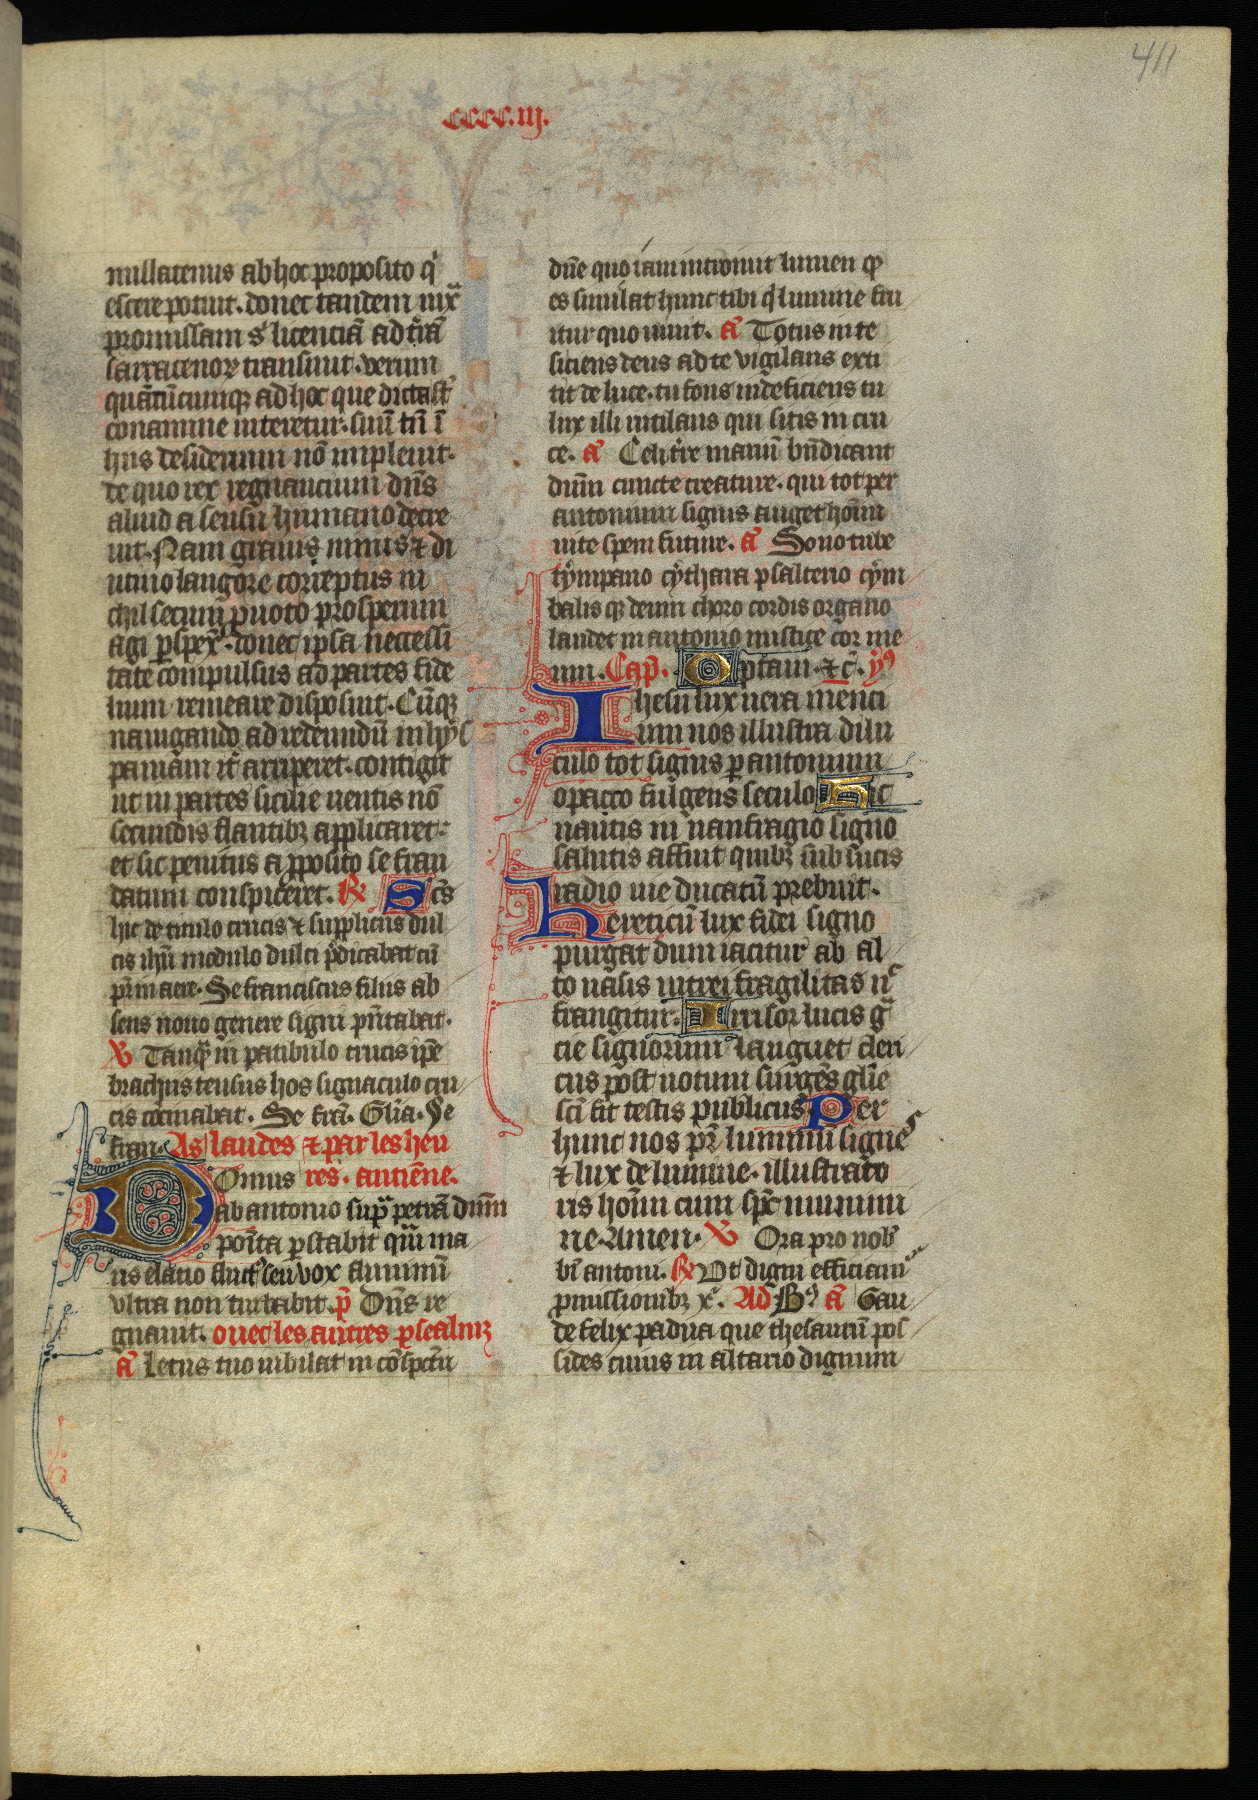 411
CCCC.iij.
nullatenus ab hoc proposito q̇
escere potuit. donec tandem iux̄
promissam s̓ licenciā ad t̄rā
sarracenoꝝ transiuit. verum
quātūcumqꝫ ad hoc que dictast̓
conamine niteretur. suū tn̄ ī
hiis desiderium nō impleuit.
de quo rex regnancium dn̄s
aliud a sensu humano decre
uit. Nam grauis nimis ⁊ di
utino langore correptus ni
chil secum ꝓ uoto prosperum
agi ꝑspex̄. donec ipsa necessi
tate compulsus ad partes fide
lium remeare disposuit. Cūqꝫ
nauigando ad redeundū in hys
paniam it̄ ariperet. contigit
ut in partes sicilie uentis nō
secundis flantibꝫ applicaret:
et sic penitus a ꝓposito se frau
datum conspiceret. ℟ Scs̄
hic de titulo crucis ⁊ supplicus dul
cis ihū modulo dulci p̄dicabat cū
prim aere. Se franciscus filius ab
sens nouo genere signi pn̄tabat.
℣ Tanqȝ in patibulo crucis ip̄e
brachiis tensus hos signaculo cru
cis cōcinabat. Se frā. Gl̄ia. Se
fran. As laudes ⁊ par les heu
Omus res. antiēne.
ab antonio sup̄ petrā dnm̄
poīta pstabit qm̄ ma
ris elatio fluct̓ seu vox fluminū
vltra non turbabit. p̄ Dn̄s re
gnauit. ouec les autres pscalmꝫ
ā Letus tuo iubilat in cōspectu
dn̄e quo iam introniut lumen qͥ
es simulat hunc tibi q̇ lumine fru
itur quo uiuit. ā Totus in te
siciens deus ad te vigilans exti
tit de luce. tu fons indeficiens tu
lux illi rutilans qui sitis in cru
ce. ā Celi t̄re manū bn̄dicant
dnm̄ cuncte creature. qui tot per
antonium signis auget hoīm
uite spem future. ā Sono tube
tẏmpano cẏthara psalterio cẏm
balis qꝫ deum choro cordis organo
laudet in antonio mistice cor me
um. Cap̄. Optaui ⁊c̄. ẏꝰ
Ihesu lux uera menci
um nos illustra dilu
culo tot signis ꝑ antonium
opacco fulgens seculo Hic
nautis in naufragio signo
salutis affuit quibꝫ sub sucis
radio uie ducatū prebuit.
Hereticū lux fidei signo
purgat dum iacitur ab al
to uasis uitrei fragilitas nͨ
frangitur. Inrisor lucis gͣ
cie signorum languet cleri
cus post uotum surges glīe
scī fit testis publicus Per
hunc nos pr̄ luminū signes
⁊ lux de lumine. illustrato
ris hoīm cum spc̄ munimi
ne. Amen. ℣ Ora pro nob̄
bī antoni. ℟ Vt digni efficiam̄
ꝓmissionibꝫ xͥ. Ad Bꝰ ā Gau
de felix padua que thesaurū pos
sides cuius in altario dignum